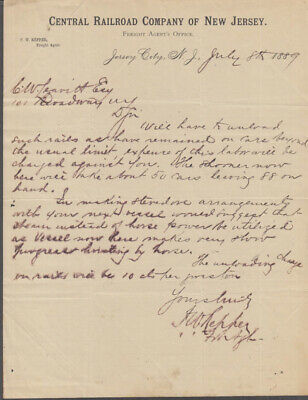 CENTRAL RAILROAD COMPANY OF NEW JERSEY.
FREIGHT AGENT'S OFFICE.
F. W. KEPPER,
Freight Agent.
Jersey City, N.J. July 8th 1889
C W Leavitt Esq
161 Broadway NY
D Sir
We'll have to unload
such rails as have remained on cars beyond
the usual limit, expense of this labor will be
charged against you. The Schooner now
here will take about 50 cars leaving 88 on
hand.
In making stevedore arrangements
with your next vessel would suggest that
steam instead of horse power be utilized
as vessel now here makes very slow
progress hoisting by horse.
The unloading charge
on rails will be 10 cts per ton
Yours truly
F W Kepper
Frt Agt